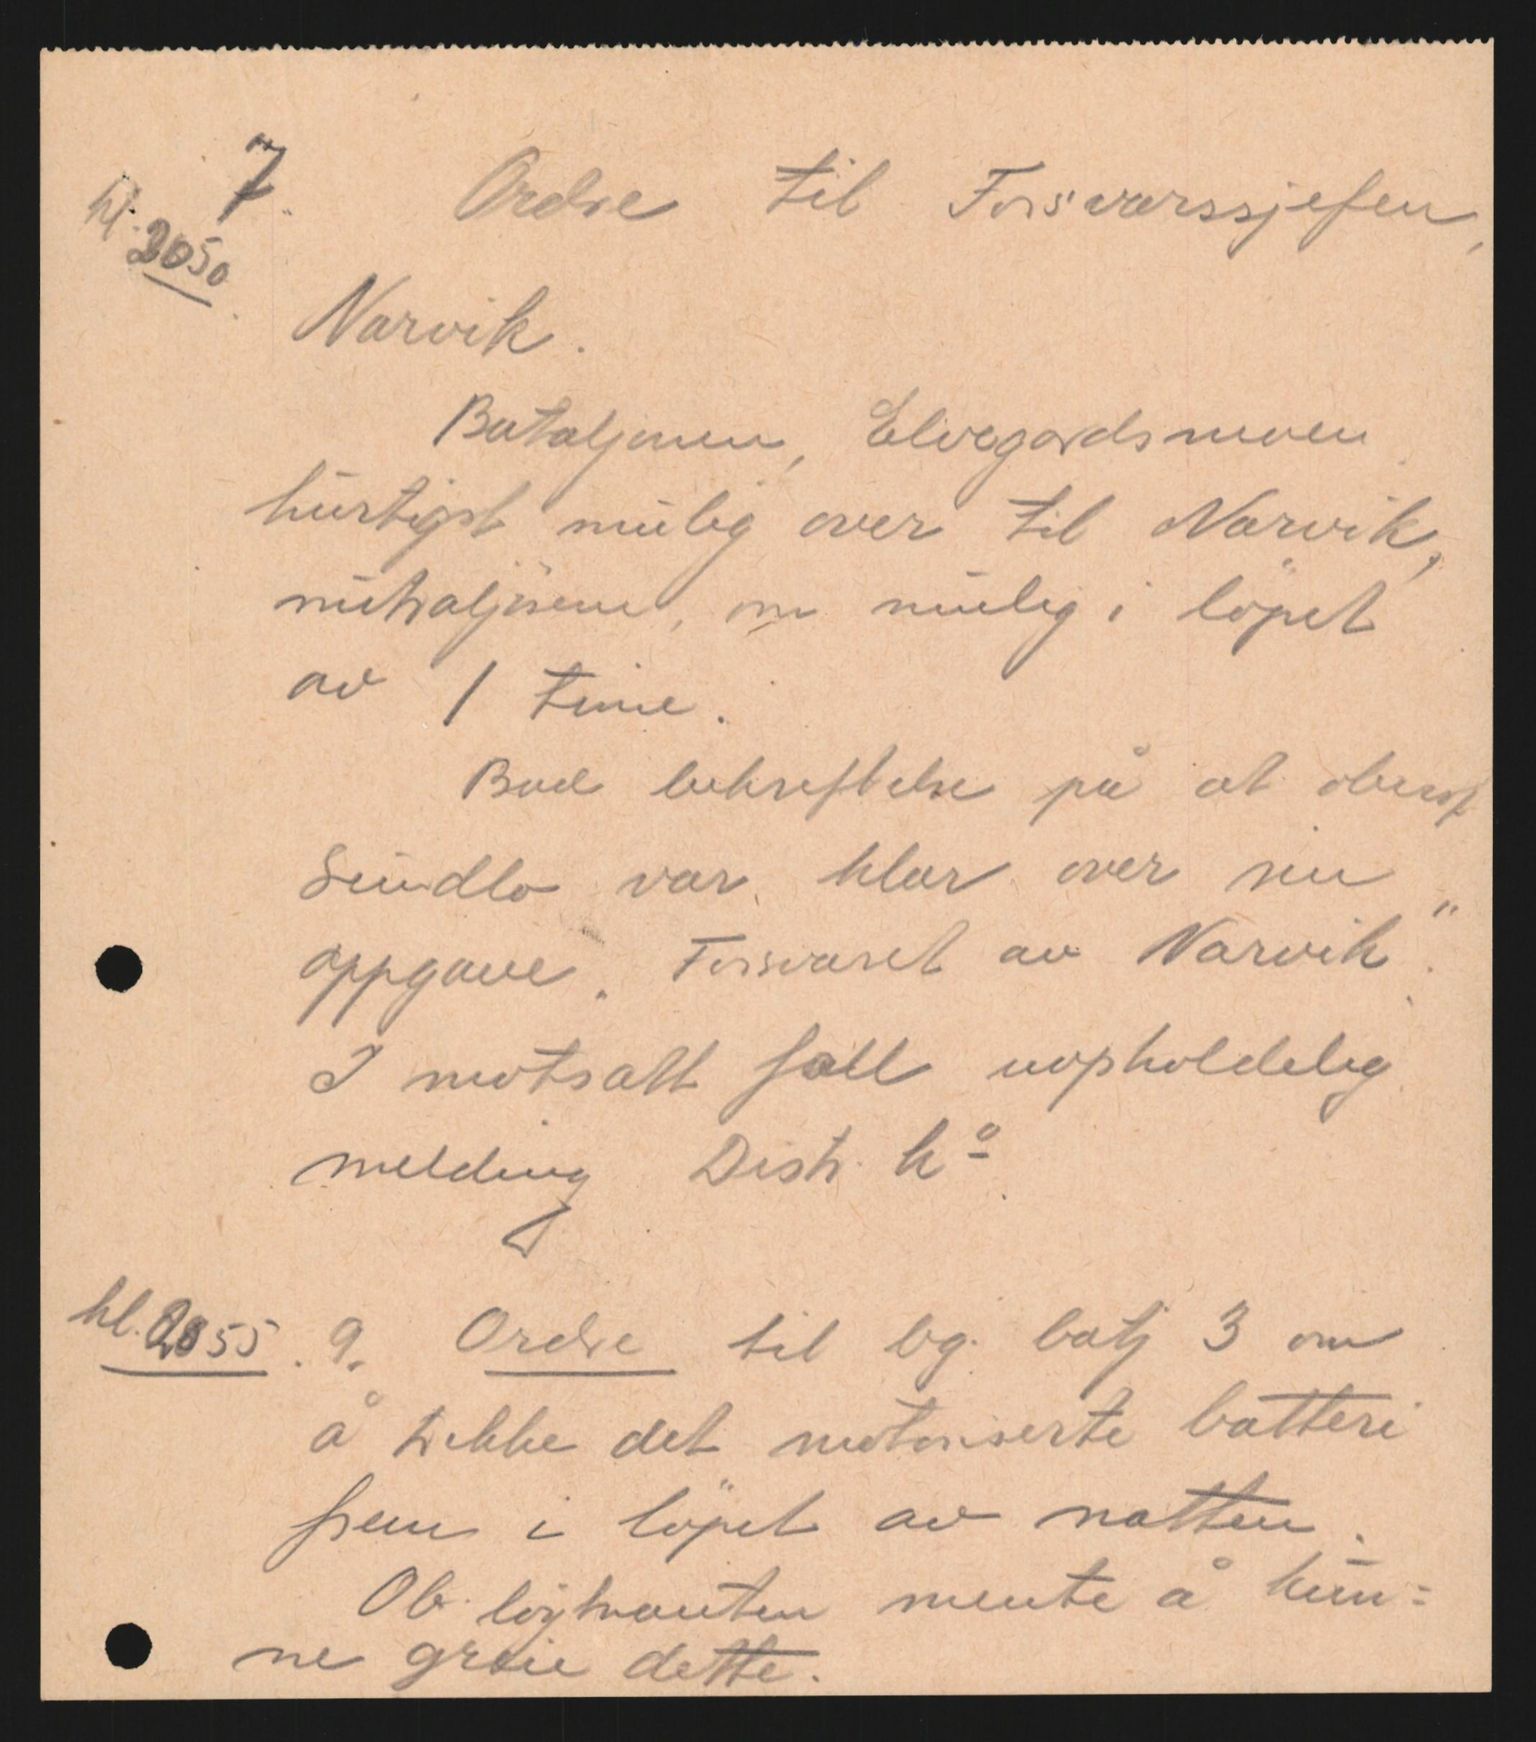 7. Ordre til Forsvarssjefen,
kl. 2050
Narvik.
Bataljonen, Elvegardsmoen
hurtigst mulig over til Narvik,
mitraljösene, om mulig i löpet
av 1 time.
Bad bekreftelse på at oberst
Sundlo var klar over sin
oppgave „Forsvaret av Narvik".
I motsatt fall uopholdelig
melding Distr. kº
kl. 2055. 9. Ordre til lg. batj 3 om
å trekke det motoriserte batteri
frem i löpet av natten.
Ob. löytnanten mente å kun=
ne greie dette.